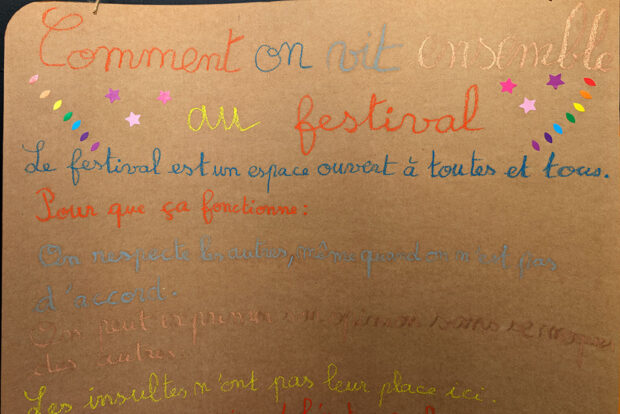 Comment on vit ensemble
au festival
Le festival est un espace ouvert à toutes et tous.
Pour que ça fonctionne:
On respecte les autres, même quand on n'est pas
d'accord.
On peut exprimer son opinion sans se moquer
des autres.
Les insultes n'ont pas leur place ici.